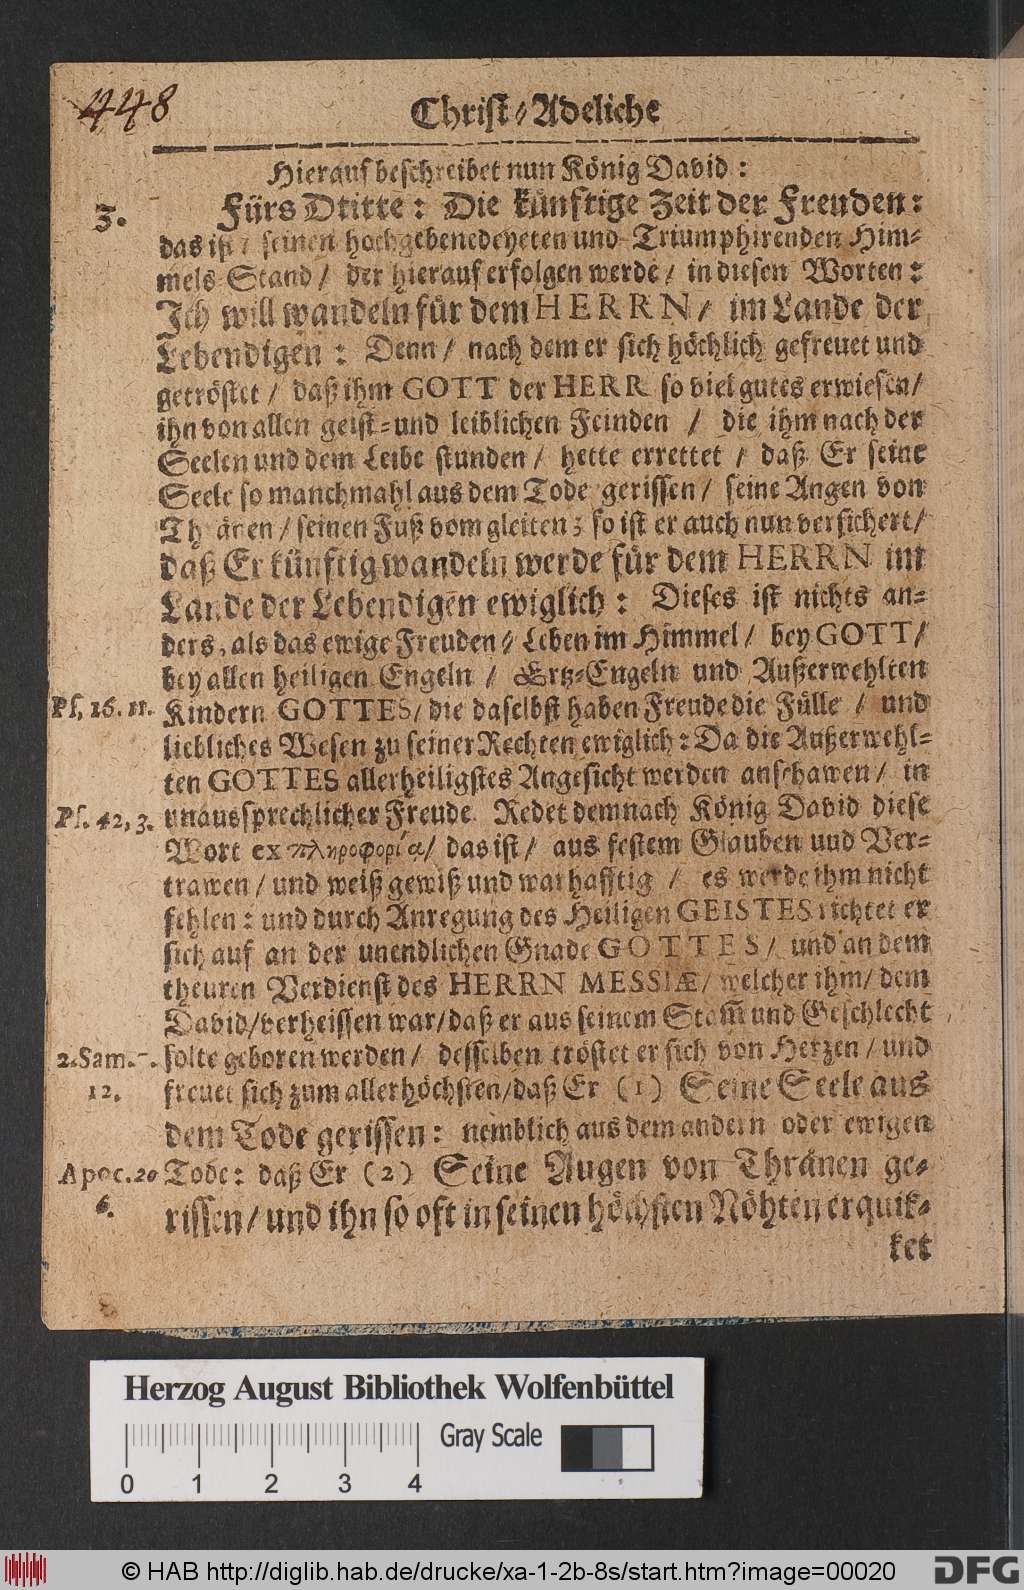 448
Christ⸗Adeliche
Hierauf beschreibet nun König David:
3. Fürs Dritte: Die künftige Zeit der Freuden:
das ist / seinen hochgebenedeyeten und Triumphirenden Him⸗
mels Stand / der hierauf erfolgen werde / in diesen Worten:
Ich will wandeln für dem HERRN / im Lande der
Lebendigen: Denn / nach dem er sich höchlich gefreuet und
getröstet / daß ihm GOTT der HERR so viel gutes erwiesen /
ihn von allen geist⸗und leiblichen Feinden / die ihm nach der
Seelen und dem Leibe stunden / hette errettet / daß Er seine
Seele so manchmahl aus dem Tode gerissen / seine Augen von
Thränen / seinen Fuß vom gleiten; so ist er auch nun versichert /
daß Er künftig wandeln werde für dem HERRN im
Lande der Lebendigen ewiglich: Dieses ist nichts an⸗
ders, als das ewige Freuden⸗Leben im Himmel / bey GOTT /
bey allen heiligen Engeln / Ertz⸗Engeln und Außerwehlten
Ps. 16. 11. Kindern GOTTES / die daselbst haben Freude die Fülle / und
liebliches Wesen zu seiner Rechten ewiglich: Da die Außerwehl⸗
ten GOTTES allerheiligstes Angesicht werden anschawen / in
Ps. 42, 3. unaussprechlicher Freude. Redet demnach König David diese
Wort ex πληροφορία / das ist / aus festem Glauben und Ver⸗
trawen / und weiß gewiß und warhafftig / es werde ihm nicht
fehlen: und durch Anregung des Heiligen GEISTES richtet er
sich auf an der unendlichen Gnade GOTTES / und an dem
theuren Verdienst des HERRN MESSIÆ / welcher ihm / dem
David / verheissen war / daß er aus seinem Stam̃ und Geschlecht
2. Sam. 7. solte geboren werden / desselben tröstet er sich von Herzen / und
12. freuet sich zum allerhöchsten / daß Er (1) Seine Seele aus
dem Tode gerissen: nemblich aus dem andern oder ewigen
Apoc. 20 Tode: daß Er (2) Seine Augen von Thränen ge⸗
6. rissen / und ihn so oft in seinen höchsten Nöhten erquik⸗
ket
Herzog August Bibliothek Wolfenbüttel
Gray Scale
0 1 2 3 4
© HAB http://diglib.hab.de/drucke/xa-1-2b-8s/start.htm?image=00020
DFG